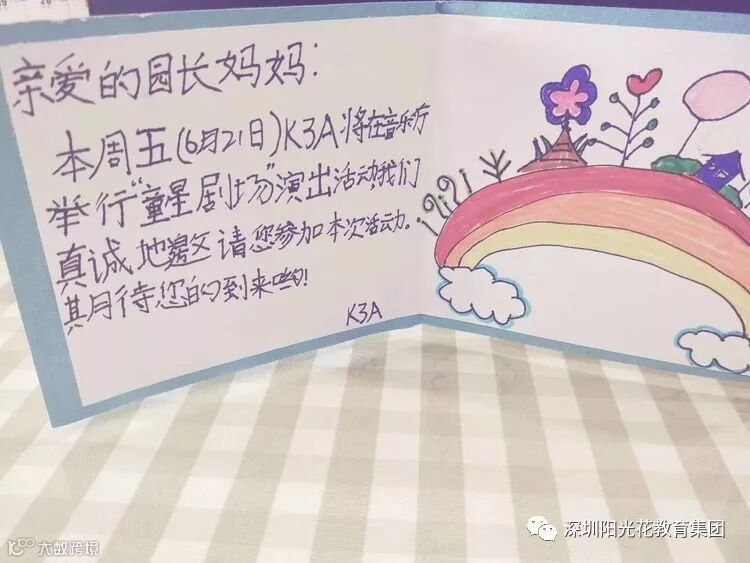 亲爱的园长妈妈:
本周五(6月21日)K3A将在音乐厅
举行"童星剧场"演出活动,我们
真诚地邀请您参加本次活动。
期待您的到来哟!
K3A
大数跨境
深圳阳光花教育集团